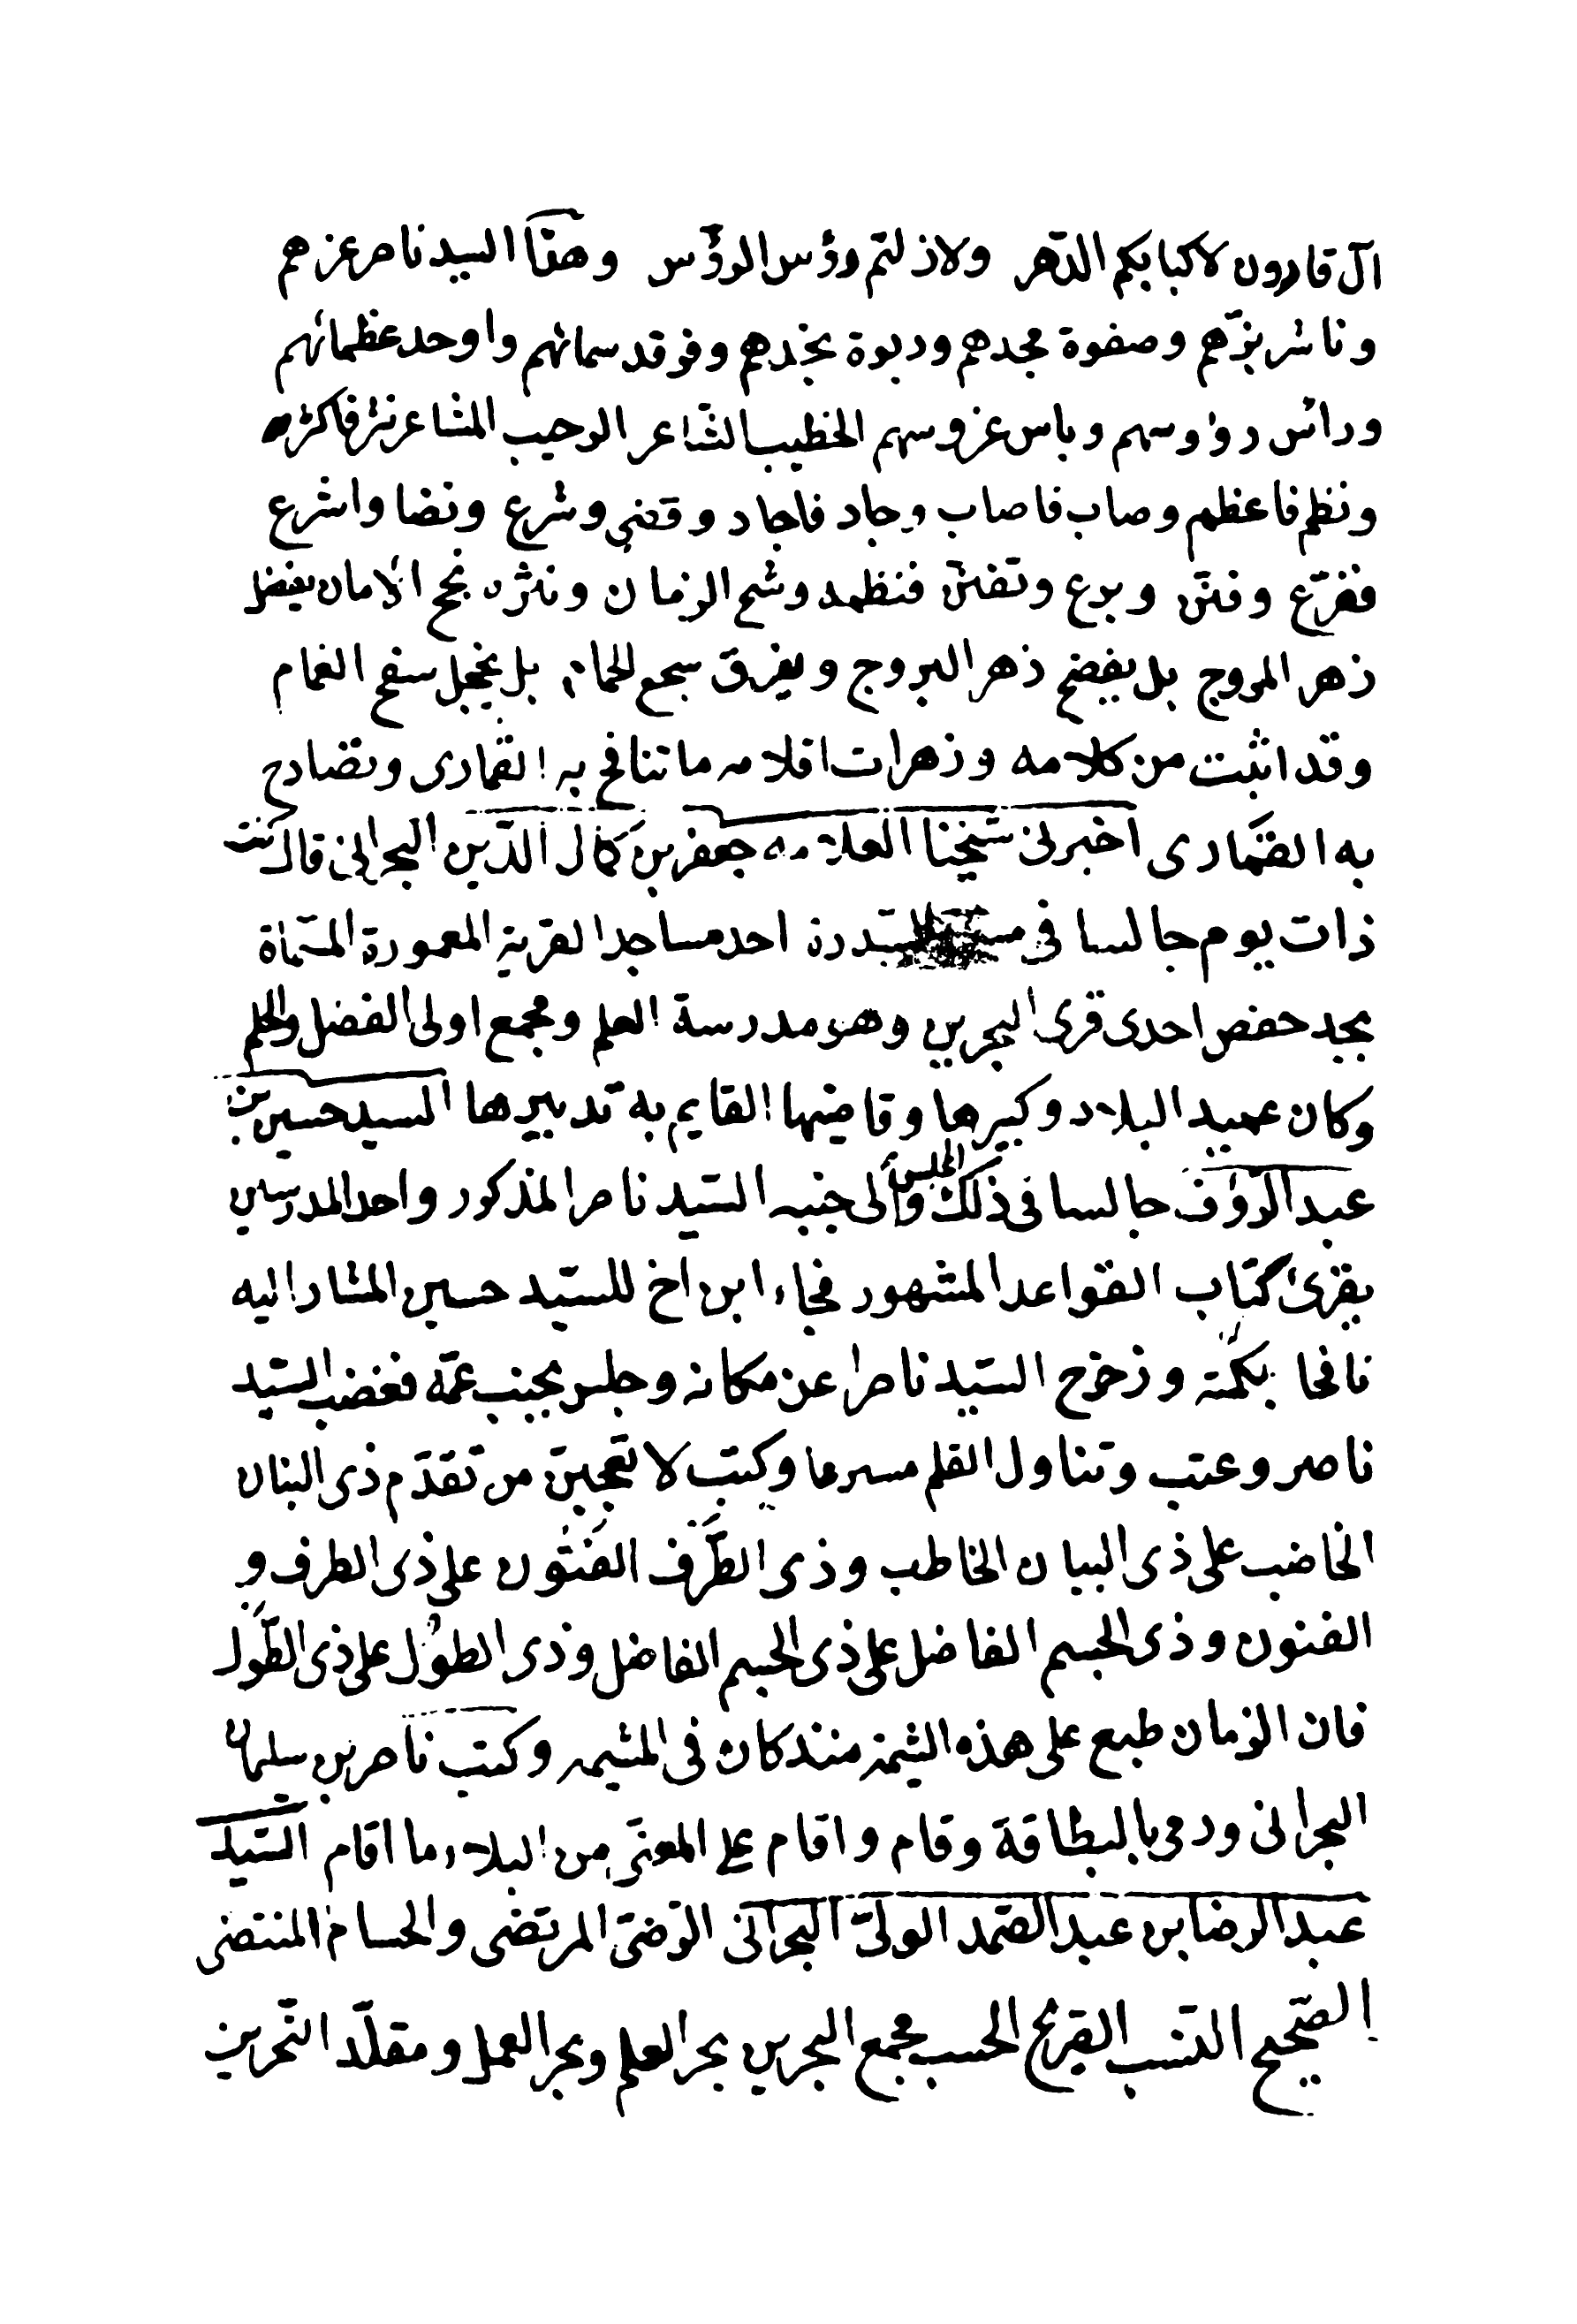 آل قارون لاكبا بكم الدّهر ولا زلتم رؤس الرؤس وهذا السيد ناصر عزهم
وناشر بزّهم وصفوة مجدهم وربوة نجدهم وفرقد سمائهم واوحد عظمائهم
ورائس رؤاوسهم وباس غروسهم الخطيب الشاعر الرحيب المشاعر نثر فاكثر
ونظم فاعظم وصاب فاصاب وجاد فاجاد وقضى وشرع ونضا واشرع
ففرّع وفنّن وبرع وتفنن فنظمه وشح الزمان ونثره نجح الامان يفضل
زهر المروج بل يفضح زهر البروج ويفرق سجع الحمام بل يخجل سفح الغمام
وقد اثبت من كلامه وزهرات اقلامه ما تنافح به القمارى وتضادح
به القمّارى اخبرنى شيخنا العلامه جعفر بن كمال الدّين البحرانى قال كنت
ذات يوم جالسا فى السّدرة احد مساجد القرية المعمورة المسمّاة
بجد حفص احدى قرى البحرين وهو مدرسة العلم ومجمع اولى الفضل والحلم
وكان عميد البلاد وكبيرها وقاضيها القايم به تدبيرها السيد حسين بن
عبد الرّؤف جالسا فى ذلك المجلس والى جنبه السّيد ناصر المذكور واحد المدرسين
يقرئ كتاب القواعد المشهور فجاء ابن اخ للسيّد حسين المشار اليه
نافحا بكمّه وزحزح السّيد ناصرا عن مكانه وجلس بجنب عمّه فغضب السّيد
ناصر وعتب وتناول القلم مسرعا وكتب لا تعجبنّ من تقدّم ذى البنان
الخاضب على ذى البيان الخاطب وذى الطَّرَف الفَتُون على ذى الطرف و
الفنون وذى الجسم الفاضل على ذى الحسم الفاضل وذى الطُول على ذى الطَّول
فان الزمان طبع على هذه الشيمة منذ كان فى المشيمه وكتب ناصر بن سليمان
البحرانى ورمى بالبطاقة وقام واقام على المعنّى من البلاء ما اقام السّيد
عبد الرضا بن عبد الصّمد الولىّ البحرانى الرّضىّ المرتضى والحسام المنتضى
الصّحيح النّسب الصّريح الحسب مجمع البحرين بحر العلم وبحر العمل ومقلّد النّحرين